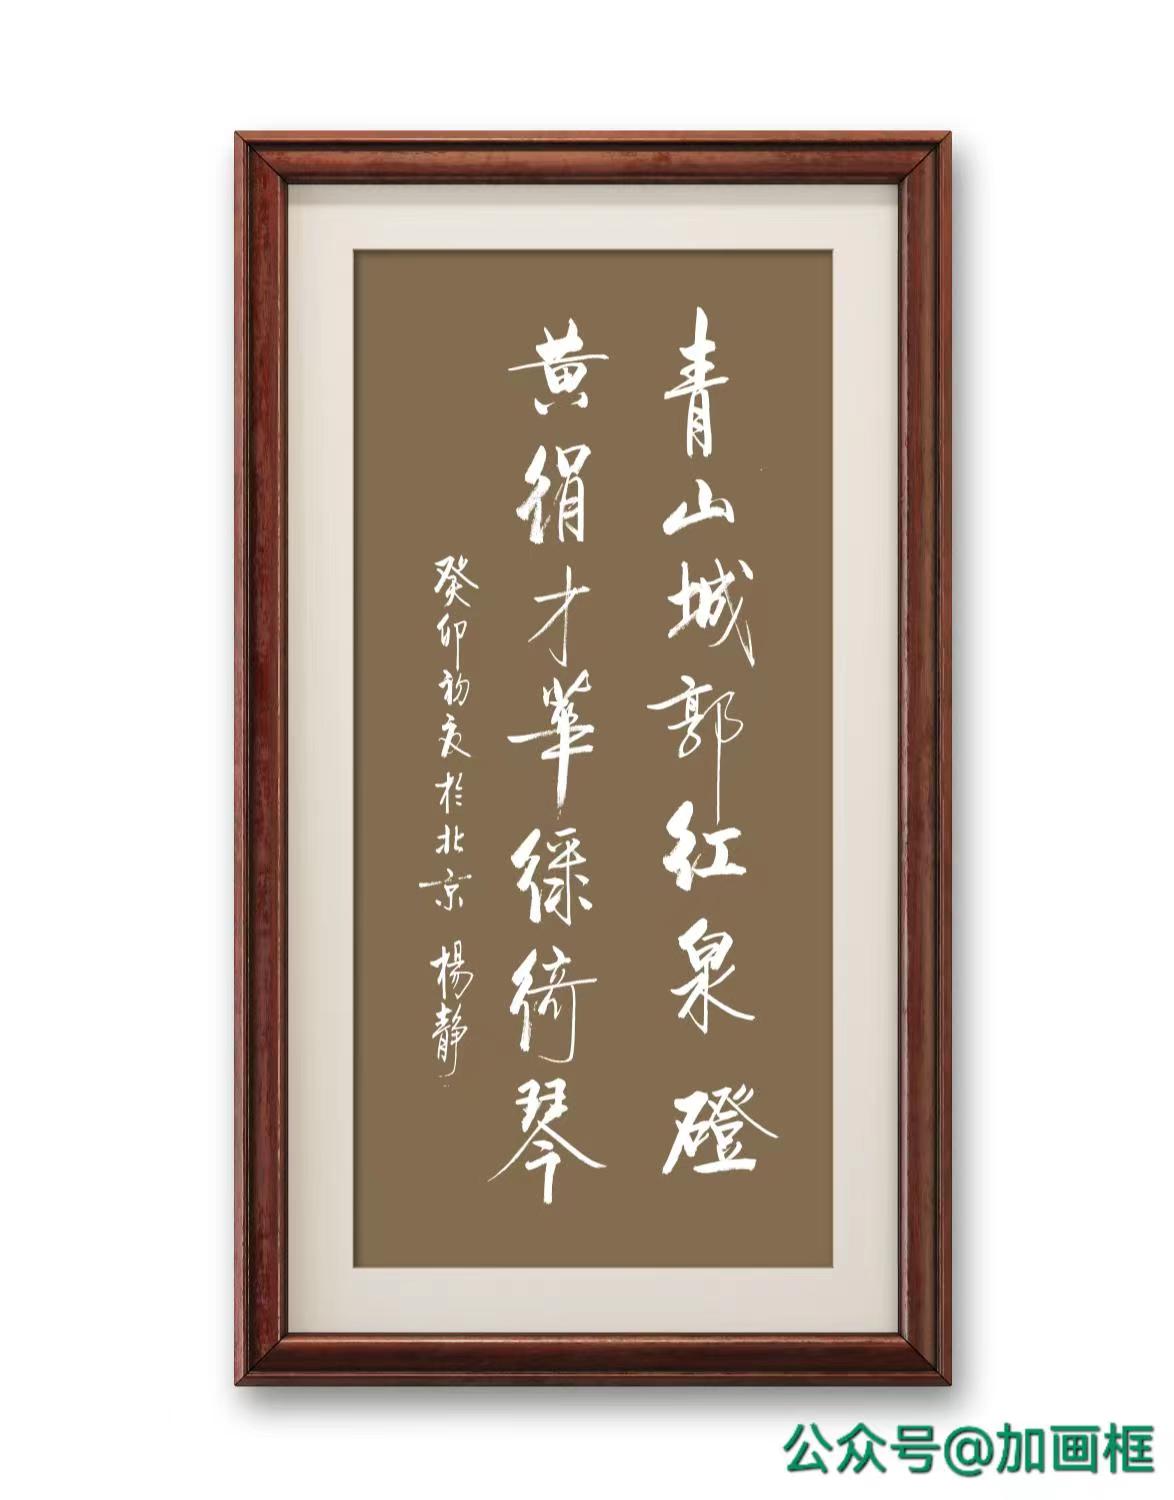 青山城郭紅泉磴
黄絹才華綠綺琴
癸卯初夏於北京 楊靜
公众号@加画框